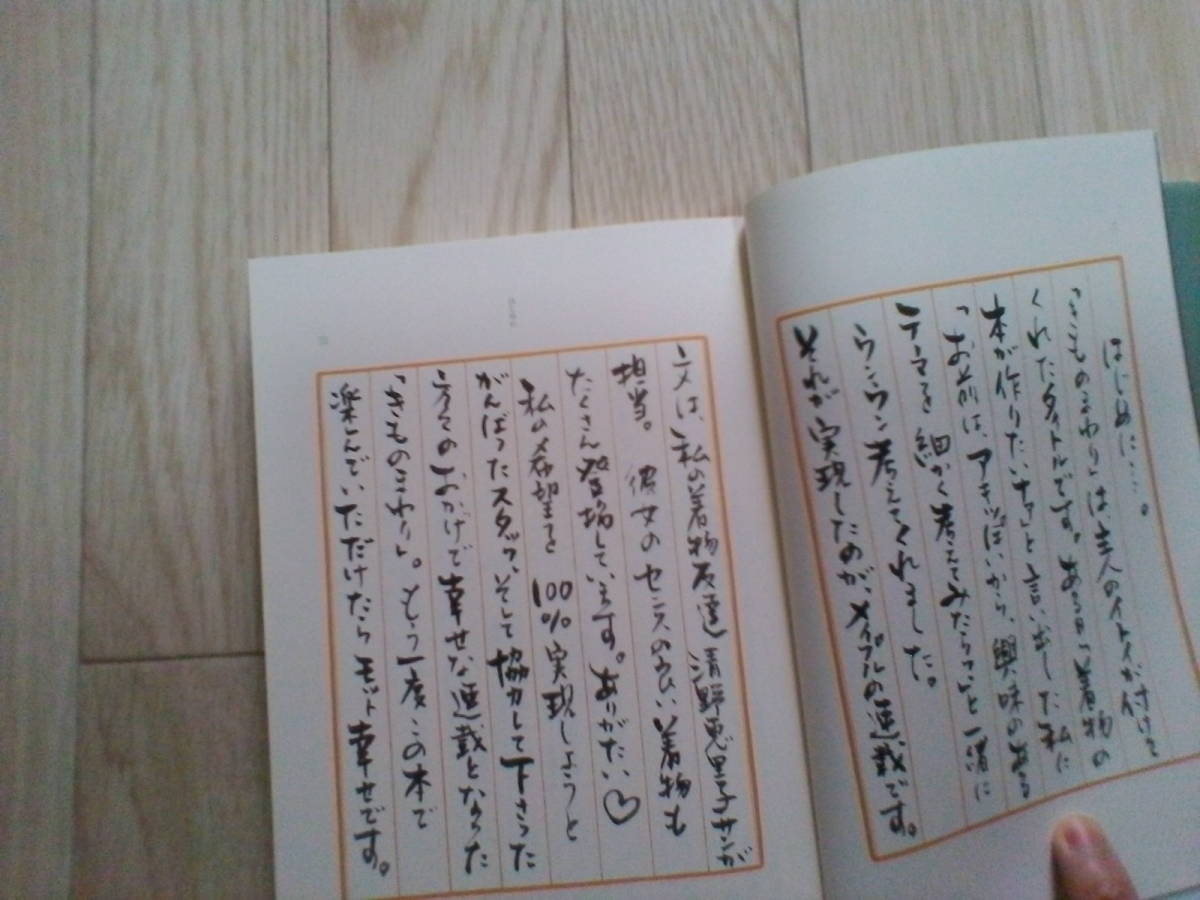 はじめに……。
「きものまわり」は、主人のイトイが付けて
くれたタイトルです。ある日、「着物の
本が作りたいナァ」と言い出した私に
「お前は、アキッぽいから、興味のある
テーマを細かく考えてみたらっ」と一緒に
ウンウン考えてくれました。
それが実現したのが、メイプルの連載です。
文は、私の着物友達 清野恵里子サンが
担当。 彼女のセンスの良い着物も
たくさん登場しています。ありがたい♡
私の希望を100%実現しようと
がんばったスタッフ、そして協力して下さった
方々のおかげで幸せな連載となった
「きものまわり」。もう一度この本で
楽しんでいただけたらモット幸せです。